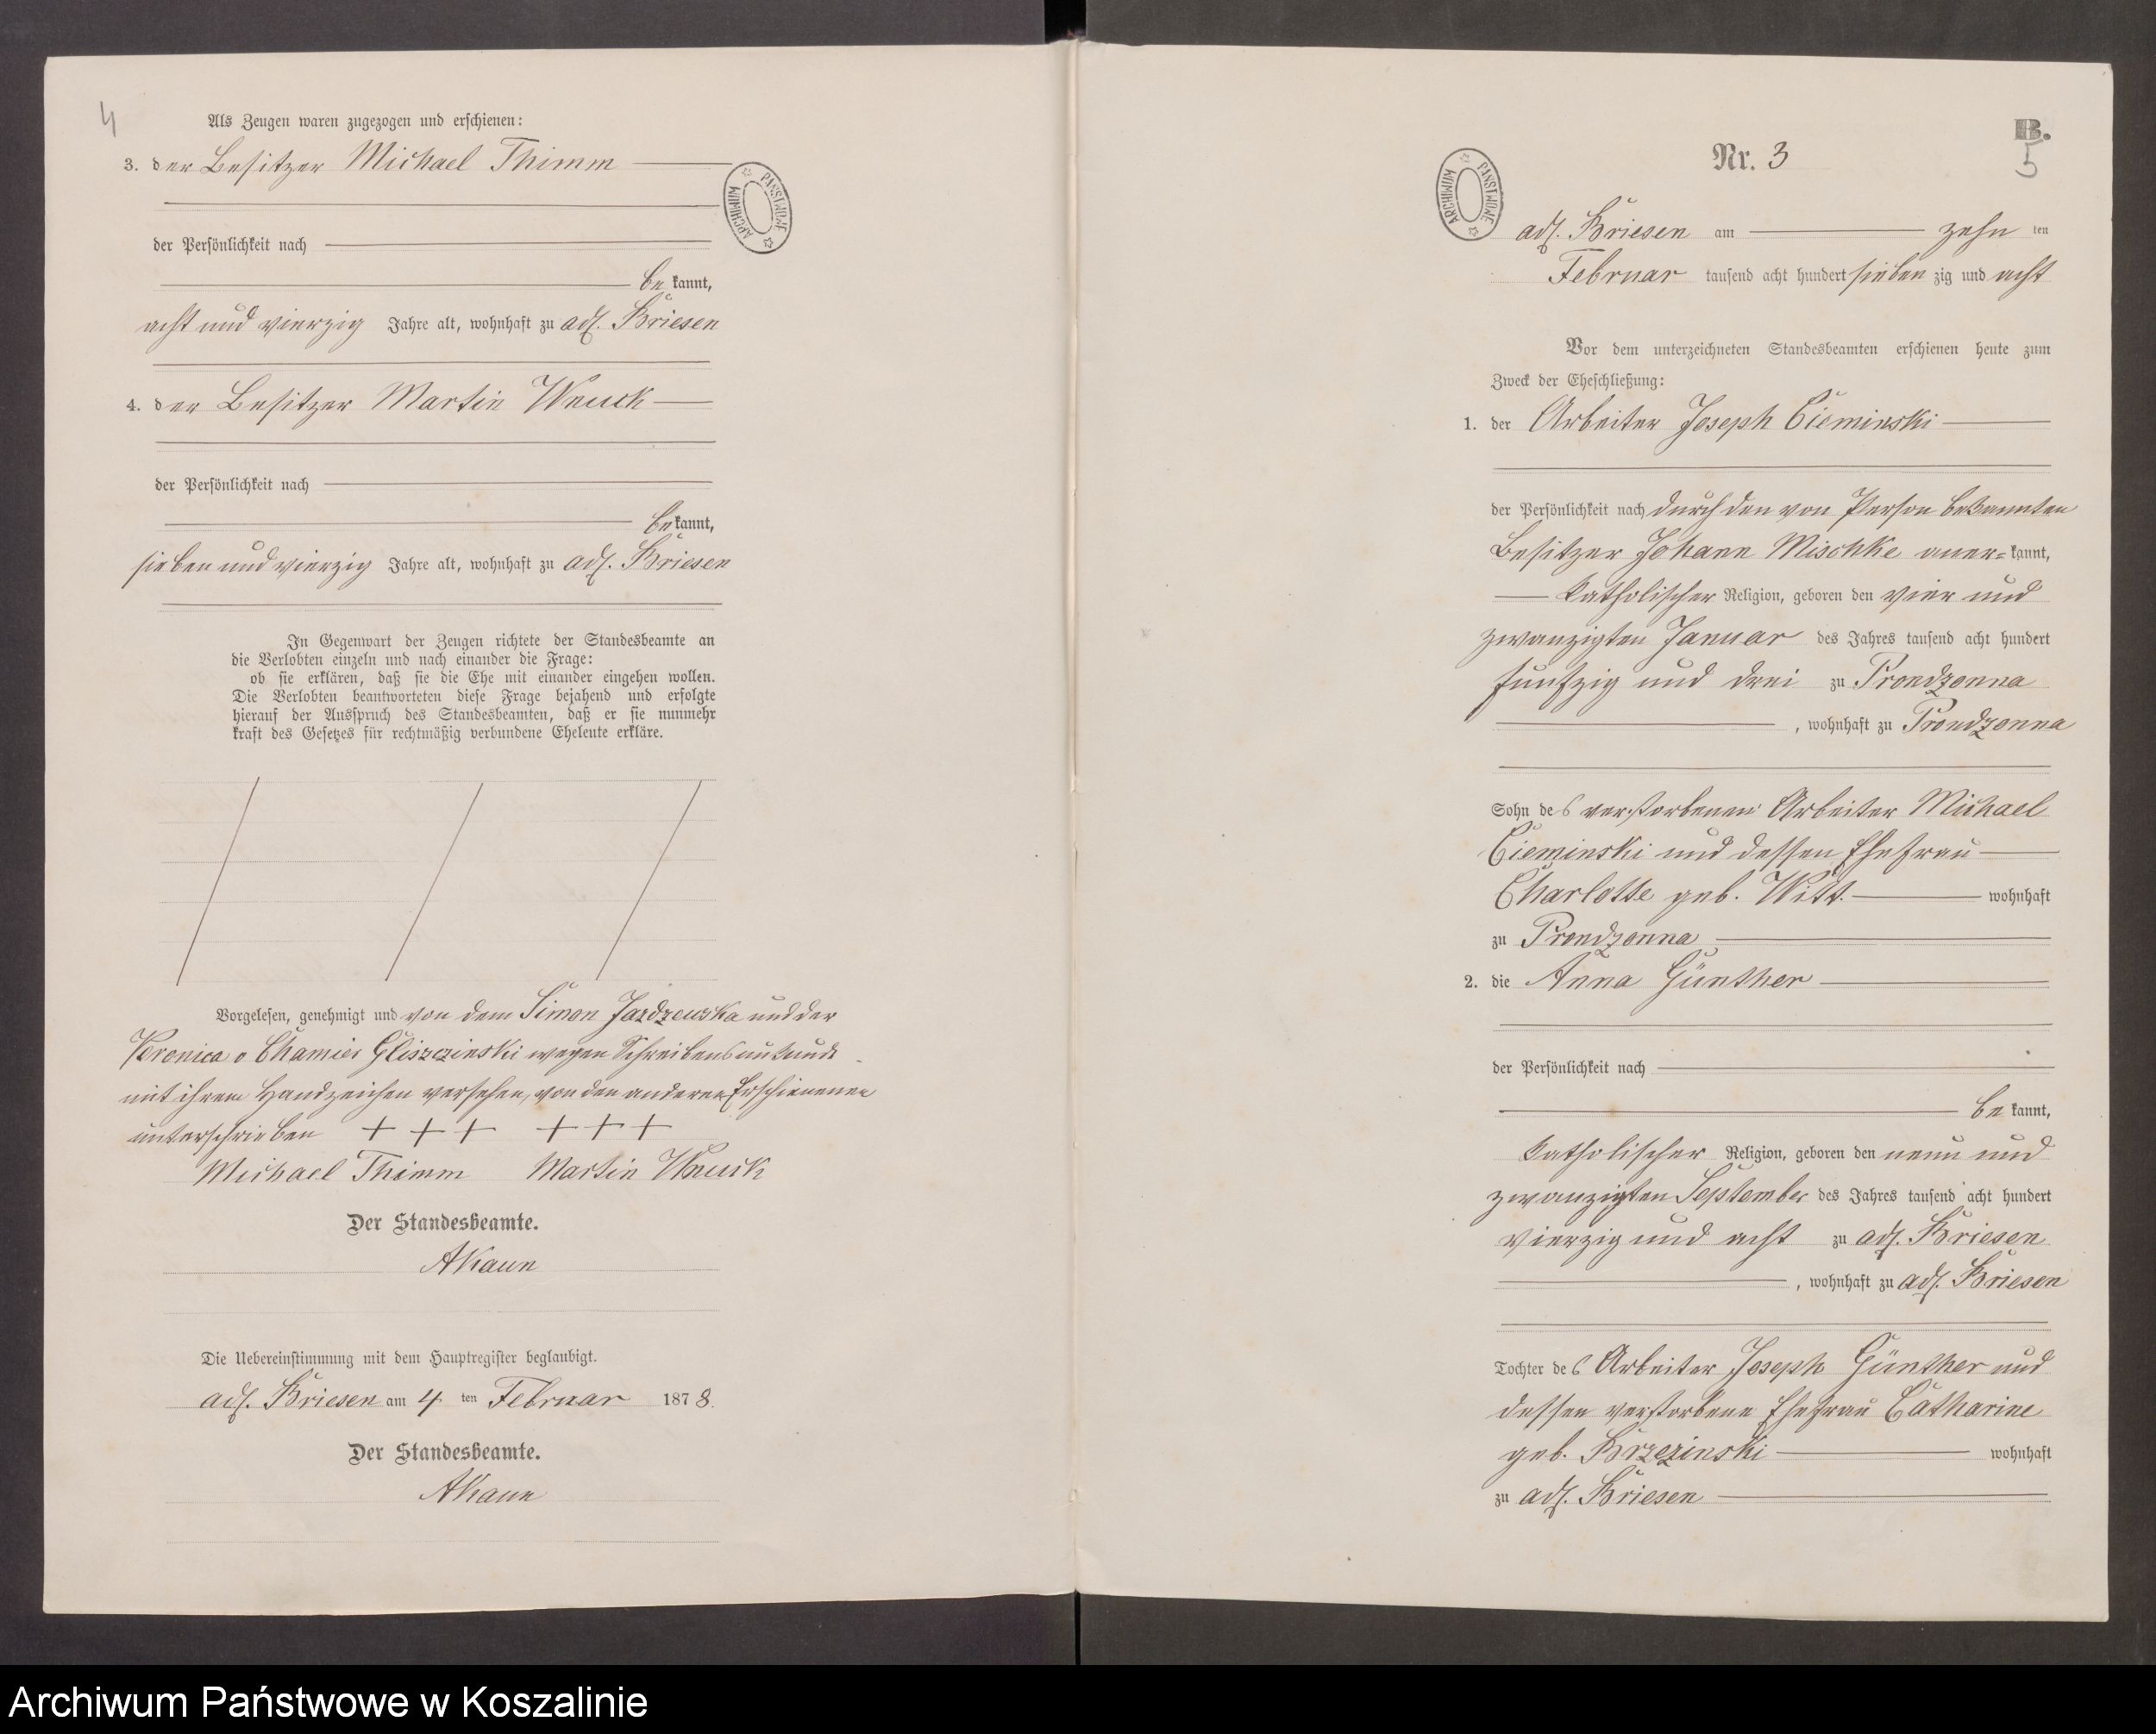 4
Als Zeugen waren zugezogen und erschienen:
3. der Besitzer Michael Thimm
der Persönlichkeit nach
be kannt,
acht und vierzig Jahre alt, wohnhaft zu adl. Briesen
4. der Besitzer Martin Wnuck
der Persönlichkeit nach
be kannt,
sieben und vierzig Jahre alt, wohnhaft zu adl. Briesen
In Gegenwart der Zeugen richtete der Standesbeamte an
die Verlobten einzeln und nach einander die Frage:
ob sie erklären, daß sie die Ehe mit einander eingehen wollen.
Die Verlobten beantworteten diese Frage bejahend und erfolgte
hierauf der Ausspruch des Standesbeamten, daß er sie nunmehr
kraft des Gesetzes für rechtmäßig verbundene Eheleute erkläre.
Vorgelesen, genehmigt und von dem Simon Jazdzewska und der
Veronica v Chamier Gliszczinski wegen Schreibensunkunde
mit ihrem Handzeichen versehen, von den anderen Erschienenen
unterschrieben + + + + + +
Michael Thimm Martin Wnuck
Der Standesbeamte.
AKaun
Die Uebereinstimmung mit dem Hauptregister beglaubigt.
adl. Briesen am 4 ten Februar 1878.
Der Standesbeamte.
AKaun
ARCHIWUM PAŃSTWOWE
B.
5
Nr. 3
ARCHIWUM PAŃSTWOWE
adl. Briesen am zehn ten
Februar tausend acht hundert sieben zig und acht
Vor dem unterzeichneten Standesbeamten erschienen heute zum
Zweck der Eheschließung:
1. der Arbeiter Joseph Cieminski
der Persönlichkeit nach durch den von Person bekannten
Besitzer Johann Mischke aner=kannt,
katholischer Religion, geboren den vier und
zwanzigten Januar des Jahres tausend acht hundert
funfzig und drei zu Prondzonna
, wohnhaft zu Prondzonna
Sohn des verstorbenen Arbeiter Michael
Cieminski und dessen Ehefrau
Charlotte geb. Witt. wohnhaft
zu Prondzonna
2. die Anna Günther
der Persönlichkeit nach
be kannt,
katholischer Religion, geboren den neun und
zwanzigten September des Jahres tausend acht hundert
vierzig und acht zu adl. Briesen
, wohnhaft zu adl. Briesen
Tochter des Arbeiter Joseph Günther und
dessen verstorbene Ehefrau Catharine
geb. Brzezinski wohnhaft
zu adl. Briesen
Archiwum Państwowe w Koszalinie